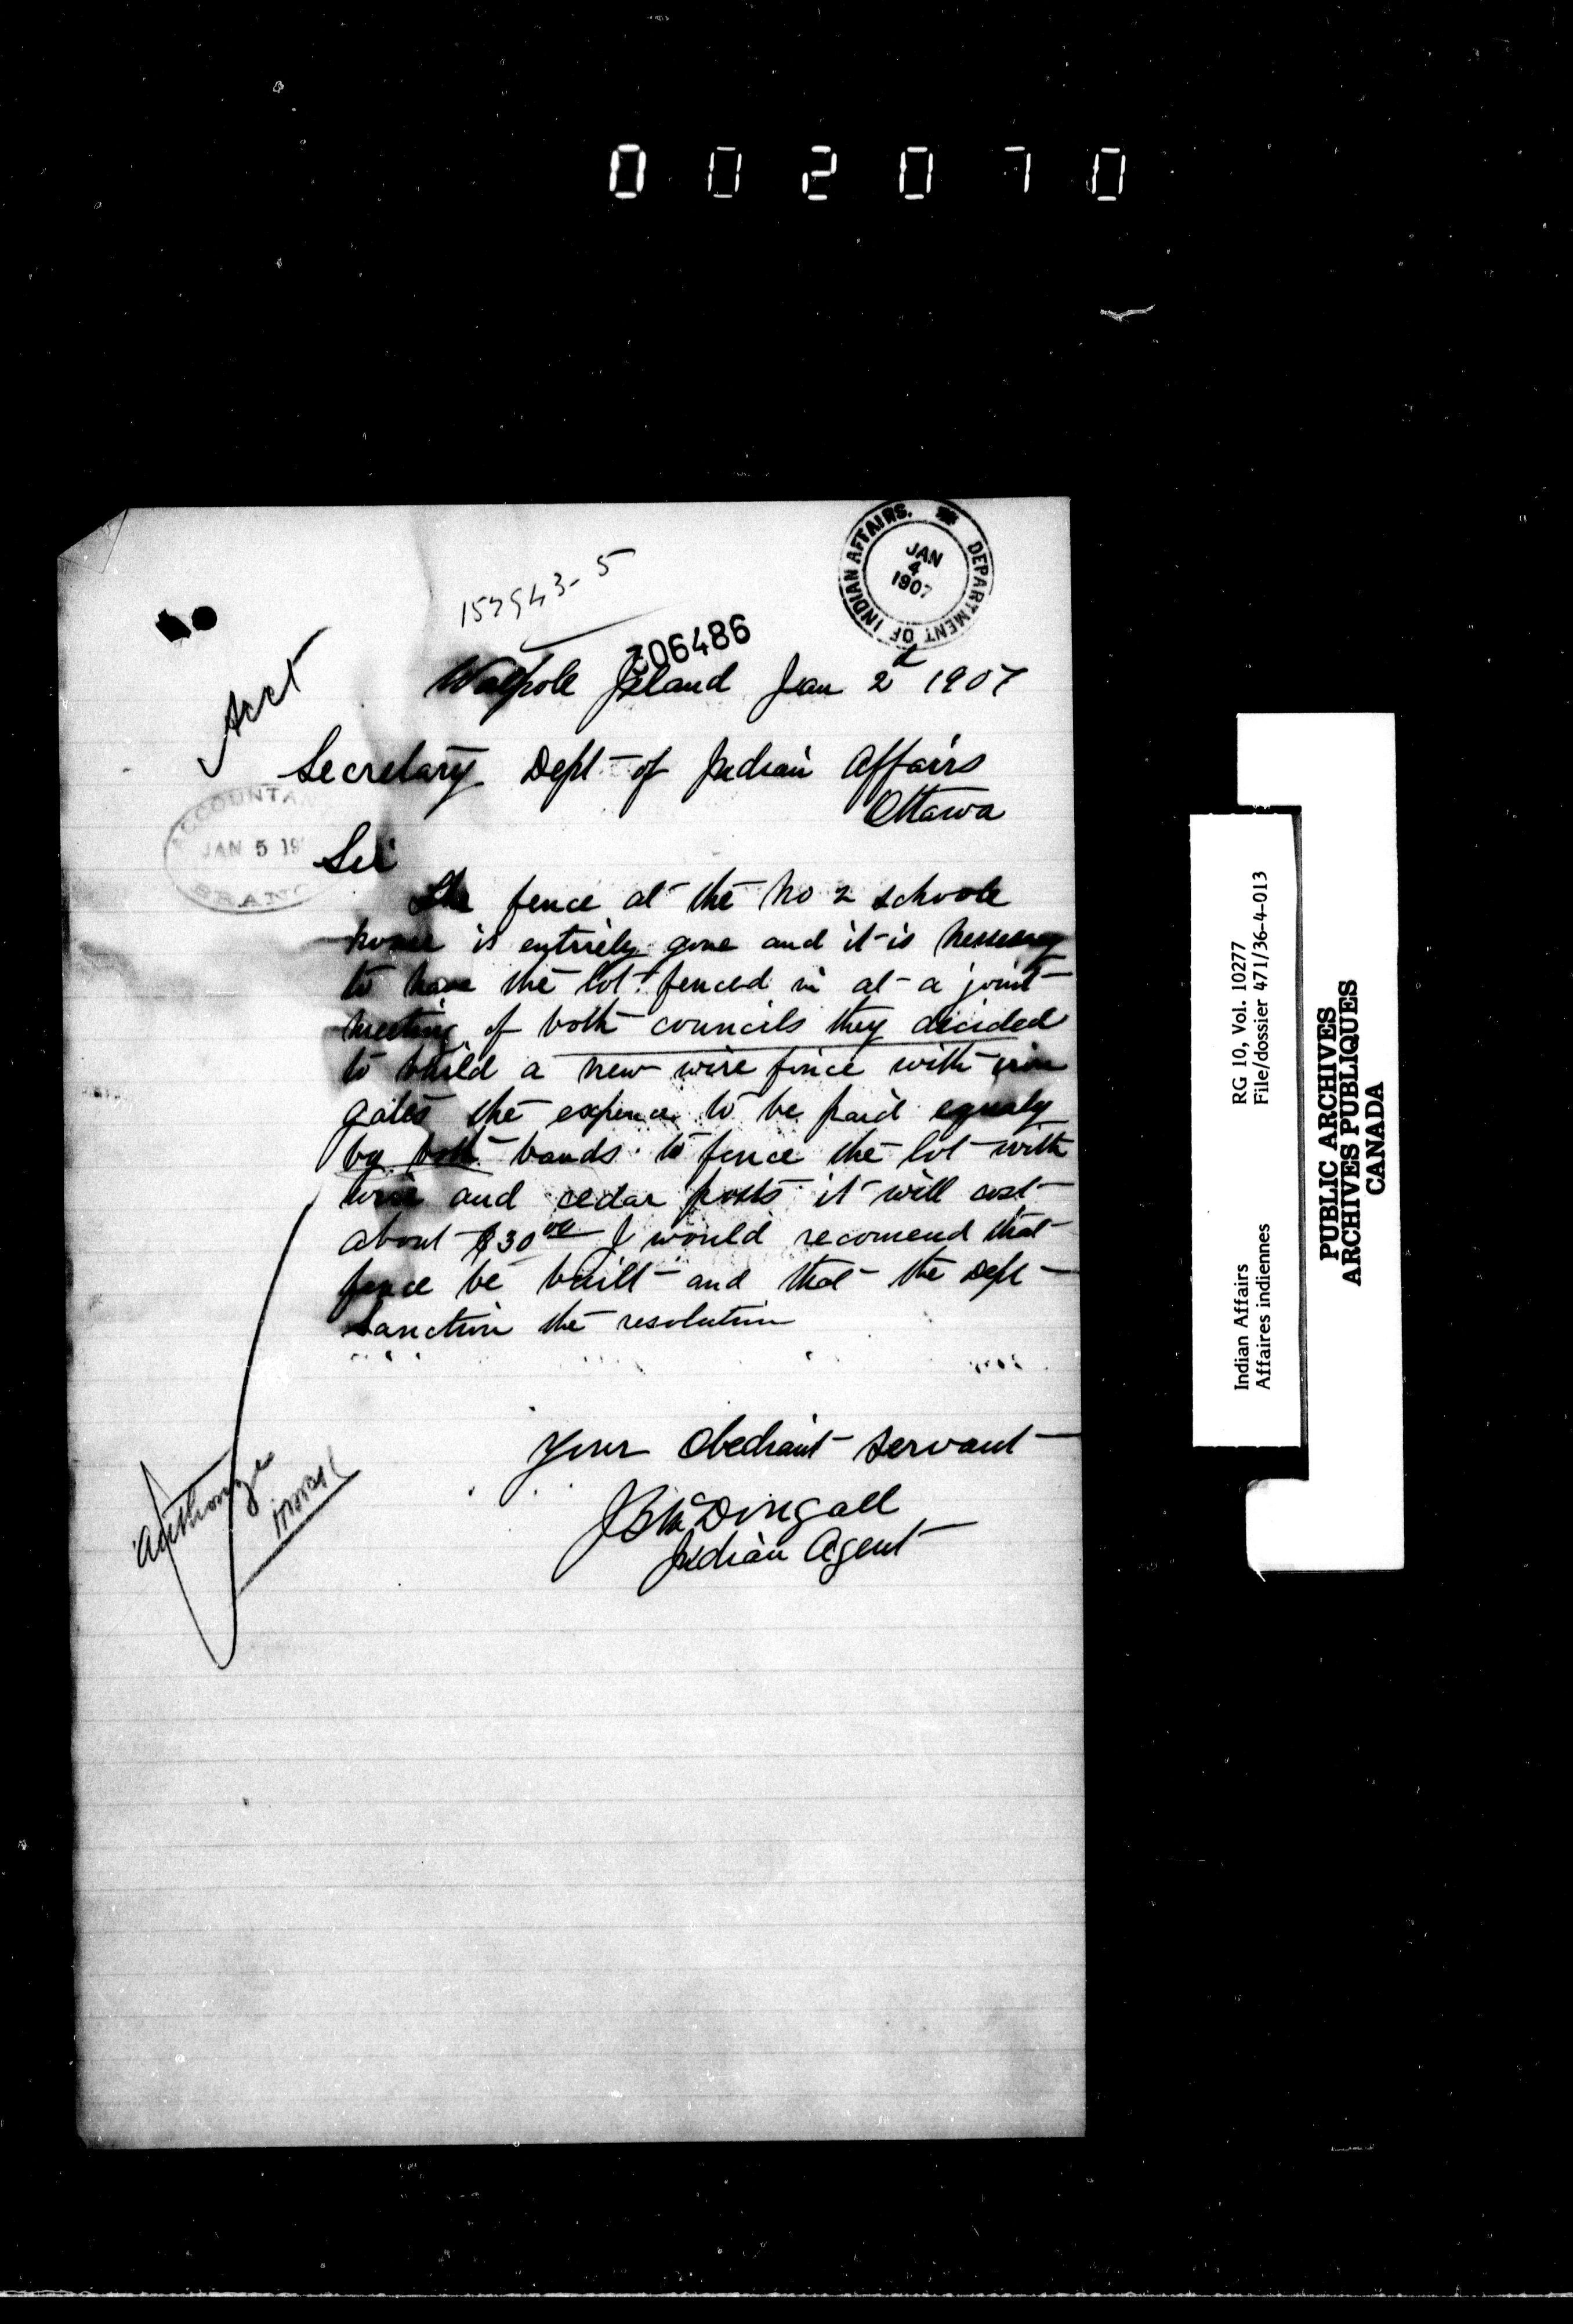 002070
DEPARTMENT OF INDIAN AFFAIRS.
JAN
4
1907
157943-5
306486
Acct
Walpole Island Jan 2d 1907
Secretary Dept of Indian Affairs
Ottawa
ACCOUNTA
JAN 5 19
BRANC
Sir
The fence at the No 2 schoole
house is entirely gone and it is nessesary
to have the lot fenced in at a joint
meeting of both councils they decided
to build a new wire fence with iron
gates the expence to be paid equaly
by both bands to fence the lot with
wire and cedar posts it will cost
about $30 00 I would recomend that
fence be built and that the Dept
sanction the resolution
Your Obediant Servant
J B McDougall
Indian Agent
Authorize
RG 10, Vol. 10277
File/dossier 471/36-4-013
Indian Affairs
Affaires indiennes
PUBLIC ARCHIVES
ARCHIVES PUBLIQUES
CANADA